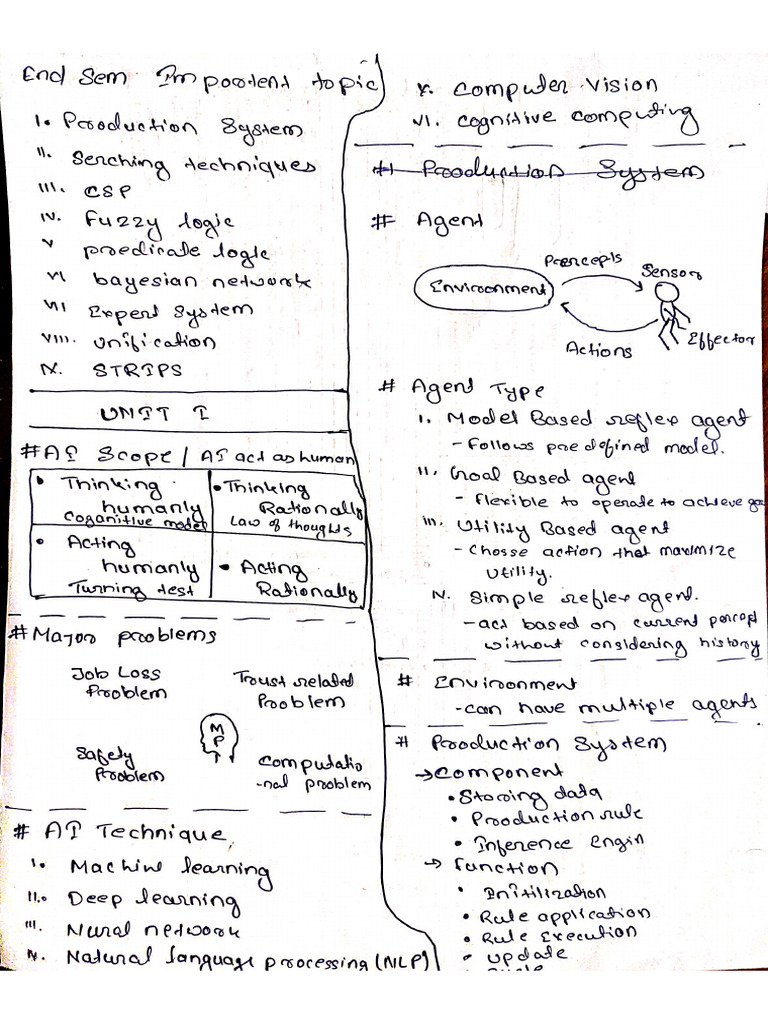 End Sem Impoortent topic
I. Production System
II. Serching techniques
III. CSP
IV. Fuzzy logic
V predicate logic
VI bayesian network
VII Expert System
VIII. Unification
IX. STRIPS
UNIT I
#AI Scope / AI act as human
• Thinking humanly
Coganitive model
• Thinking Rationally
Law of thoughts
• Acting humanly
Turning test
• Acting Rationally
# Major problems
Job Loss Problem
Trust related Problem
MP
Safety Problem
Computatio
-nal problem
# AI Technique
I. Machine learning
II. Deep learning
III. Nural network
IV. Natural language processing (NLP)
V. Computer vision
VI. cognitive computing
# Production System
# Agent
Environment
Percepts
Sensor
Actions
Effector
# Agent Type
I. Model Based reflex agent
- Follows pre defined model.
II. Goal Based agent
- Flexible to operate to achieve goa
III. Utility Based agent
- Chosse action that maximize
utility.
IV. Simple reflex agent.
- act based on current percept
without considering history
# Environment
- can have multiple agents
# Production System
→ Component
• Storing data
• Production rule
• Inference Engin
→ function
• Initilization
• Rule application
• Rule Execution
• update